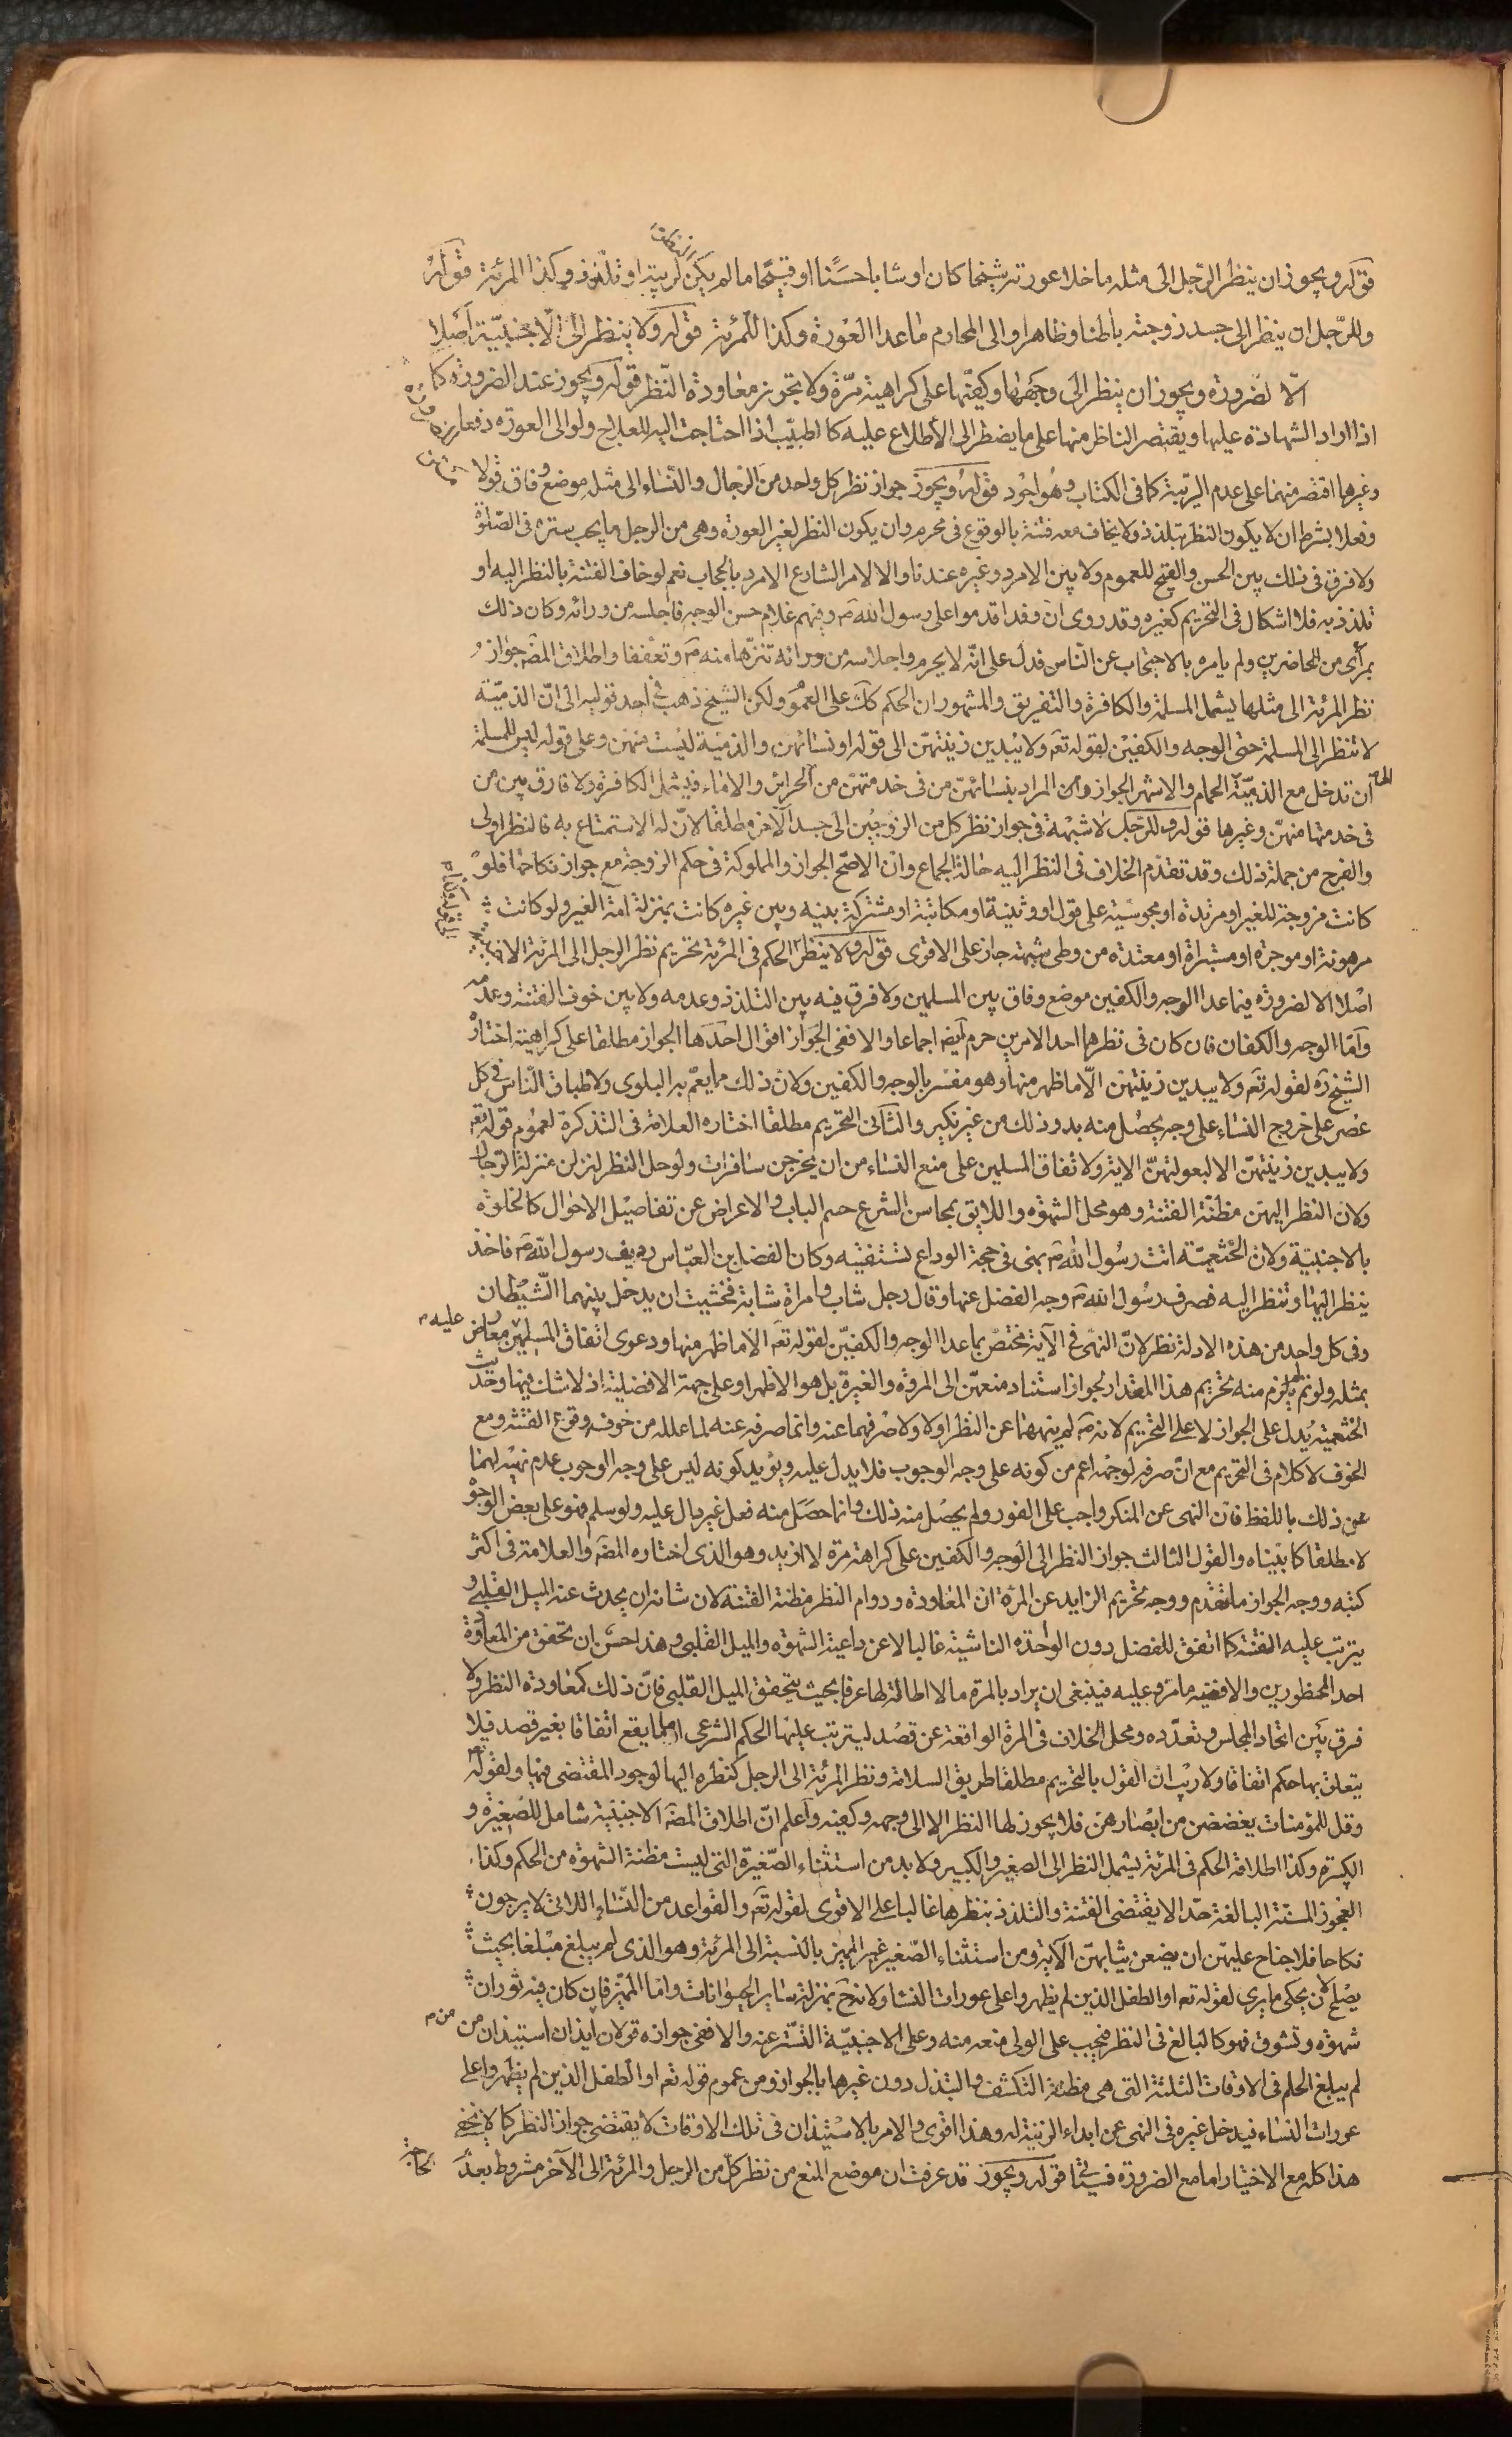 قوله ويجوز ان ينظر الرجل الى مثله ما خلا عورته شيخا كان او شابا حسنا او قبيحا ما لم يكن لريبة او تلذذ وكذا المرئة قوله
وللرجل ان ينظر الى جسد زوجته باطنا وظاهرا والى المحارم ما عدا العورة وكذا للمرئة قوله ولا ينظر الى الاجنبية اصلا
الا لضرورة ويجوز ان ينظر الى وجهها وكفيها على كراهية مرة ولا يجوز معاودة النظر قوله ويجوز عند الضرورة كما
اذا اراد الشهادة عليها ويقتصر الناظر منها على ما يضطر الى الاطلاع عليه كالطبيب اذا احتاجت اليه للعلاج ولو الى العورة دفعا
وغيرها اقتصر منهما على عدم الريبة كما في الكتاب وهو اجود قوله ويجوز جواز نظر كل واحد من الرجال والنساء الى مثله موضع وفاق قولا
وفعلا بشرط ان لا يكون النظر بتلذذ ولا يخاف معه فتنة بالوقوع في محرم وان يكون النظر لغير العورة وهي من الرجل ما يجب ستره في الصلوة
ولا فرق في ذلك بين الحسن والقبيح للعموم ولا بين الامرد وغيره عندنا والا لامر الشارع الامرد بالحجاب نعم لو خاف الفتنة بالنظر اليه او
تلذذ به فلا اشكال في التحريم كغيره وقد روى ان وفدا قدموا على رسول الله ص وفيهم غلام حسن الوجه فاجلسه من ورائه وكان ذلك
بمرأى من الحاضرين ولم يامره بالاحتجاب عن الناس فدل على انه لا يحرم واجلاسه من ورائه تنزها منه ص وتعففا واطلاق المصه جواز
نظر المرئة الى مثلها يشمل المسلمة والكافرة والتفريق والمشهور ان الحكم كك على العموم ولكن الشيخ ذهب في احد قوليه الى ان الذمية
لا تنظر الى المسلمة حتى الوجه والكفين لقوله تعه ولا يبدين زينتهن الى قوله او نسائهن والذمية ليست منهن وعلى قوله ليس للمسلمة
ان تدخل مع الذمية الى الحمام والاشهر الجواز وان المراد بنسائهن من في خدمتهن من الحرائر والاماء فيشمل الكافرة ولا فارق بين من
في خدمتها منهن وغيرها قوله وللرجل لا شبهة في جواز نظر كل من الزوجين الى جسد الآخر مطلقا لان له الاستمتاع به فالنظر اولى
والفرج من جملة ذلك وقد تقدم الخلاف في النظر اليه حالة الجماع وان الاصح الجواز والمملوكة في حكم الزوجة مع جواز نكاحها فلو
كانت مزوجة للغير او مرتدة او مجوسية على قول او وثنية او مكاتبة او مشتركة بينه وبين غيره كانت بمنزلة امة الغير ولو كانت
مرهونة او موجرة او مستبراة او معتدة من وطى شبهة جاز على الاقوى قوله ولا ينظر الحكم في المرئة تحريم نظر الرجل الى المرئة الاجنبية
اصلا الا لضرورة فيما عدا الوجه والكفين موضع وفاق بين المسلمين ولا فرق فيه بين التلذذ وعدمه ولا بين خوف الفتنة وعدمه
واما الوجه والكفان فان كان في نظرهما احد الامرين حرم ايضا اجماعا والا ففي الجواز اقوال احدها الجواز مطلقا على كراهية اختاره
الشيخ ره لقوله تعه ولا يبدين زينتهن الا ما ظهر منها وهو مفسر بالوجه والكفين ولان ذلك مما يعم به البلوى ولاطباق الناس في كل
عصر على خروج النساء على وجه يحصل منه بدو ذلك من غير نكير والثاني التحريم مطلقا اختاره العلامة في التذكرة لعموم قوله تعه
ولا يبدين زينتهن الا لبعولتهن الاية ولاتفاق المسلمين على منع النساء من ان يخرجن سافرات ولو حل النظر لنزلن منزلة الرجال
ولان النظر اليهن مظنة الفتنة وهو محل الشهوة واللايق بمحاسن الشرع حسم الباب والاعراض عن تفاصيل الاحوال كالخلوة
بالاجنبية ولان الخثعمية اتت رسول الله ص بمنى في حجة الوداع تستفتيه وكان الفضل بن العباس رديف رسول الله ص فاخذ
ينظر اليها وتنظر اليه فصرف رسول الله ص وجه الفضل عنها وقال رجل شاب وامراة شابة فخشيت ان يدخل بينهما الشيطان
وفي كل واحد من هذه الادلة نظر لان النهى في الآية مختص بما عدا الوجه والكفين لقوله تعه الا ما ظهر منها ودعوى اتفاق المسلمين عليه معارض
بمثله ولو تم لم يلزم منه تحريم هذا المقدار لجواز استناد منعهن الى المروة والغيرة بل هو الاظهر او على جهة الافضلية اذ لا شك فيها وحديث
الخثعمية يدل على الجواز لا على التحريم لانه ص لم ينههما عن النظر اولا ولا صرفهما عنه وانما صرفه عنه لما علله من خوف وقوع الفتنة ومع
الخوف لا كلام في التحريم مع ان صرفه لوجهه اعم من كونه على وجه الوجوب فلا يدل عليه ويؤيد كونه ليس على وجه الوجوب عدم نهيه لهما
عن ذلك باللفظ فان النهى عن المنكر واجب على الفور ولم يحصل منه ذلك وانما حصل منه فعل غير دال عليه ولو سلم فهو على بعض الوجوه
لا مطلقا كما بيناه والقول الثالث جواز النظر الى الوجه والكفين على كراهة مرة لا ازيد وهو الذى اختاره المصه والعلامة في اكثر
كتبه ووجه الجواز ما تقدم ووجه تحريم الزايد عن المرة ان المعاودة ودوام النظر مظنة الفتنة لان شانه ان يحدث عنه الميل القلبي و
يترتب عليه الفتنة كما اتفق للفضل دون الواحدة الناشية غالبا لا عن داعية الشهوة والميل القلبي وهذا حسن ان تحقق من المعاودة
احد المحظورين والا ففيه ما مر وعليه فينبغى ان يراد بالمرة ما لا اطالة لها عرفا بحيث يتحقق الميل القلبي فان ذلك كمعاودة النظر ولا
فرق بين اتحاد المجلس وتعدده ومحل الخلاف في المرة الواقعة عن قصد ليترتب عليها الحكم الشرعى اما ما يقع اتفاقا بغير قصد فلا
يتعلق بها حكم اتفاقا ولا ريب ان القول بالتحريم مطلقا طريق السلامة ونظر المرئة الى الرجل كنظره اليها لوجود المقتضى فيهما ولقوله
وقل للمؤمنات يغضضن من ابصارهن فلا يجوز لها النظر الا الى وجهه وكفيه واعلم ان اطلاق المصه الاجنبية شامل للصغيرة و
الكبيرة وكذا اطلاقه الحكم في المرئة يشمل النظر الى الصغير والكبير ولا بد من استثناء الصغيرة التي ليست مظنة الشهوة من الحكم وكذا
العجوز المسنة البالغة حدا لا يقتضى الفتنة والتلذذ بنظرها غالبا على الاقوى لقوله تعه والقواعد من النساء اللاتي لا يرجون
نكاحا فلا جناح عليهن ان يضعن ثيابهن الآية ومن استثناء الصغير غير المميز بالنسبة الى المرئة وهو الذى لم يبلغ مبلغا بحيث
يصلح لان يحكى ما يرى لقوله تعه او الطفل الذين لم يظهروا على عورات النسا ولانه ح بمنزلة ساير الحيوانات واما المميز فان كان فيه ثوران
شهوة وتشوق فهو كالبالغ في النظر فيجب على الولى منعه منه وعلى الاجنبية التستر عنه والا ففي جوازه قولان ايذان استيذان من
لم يبلغ الحلم في الاوقات الثلثة التي هي مظنة التكشف والتبذل دون غيرها بالجواز ومن عموم قوله تعه او الطفل الذين لم يظهروا على
عورات النساء فيدخل غيره في النهى عن ابداء الزينة له وهذا اقوى والامر بالاستيذان في تلك الاوقات لا يقتضى جواز النظر كما لا يخفى
هذا كله مع الاختيار اما مع الضرورة فسياتي قوله ويجوز قد عرفت ان موضع المنع من نظر كل من الرجل والمرئة الى الآخر مشروط بعدم